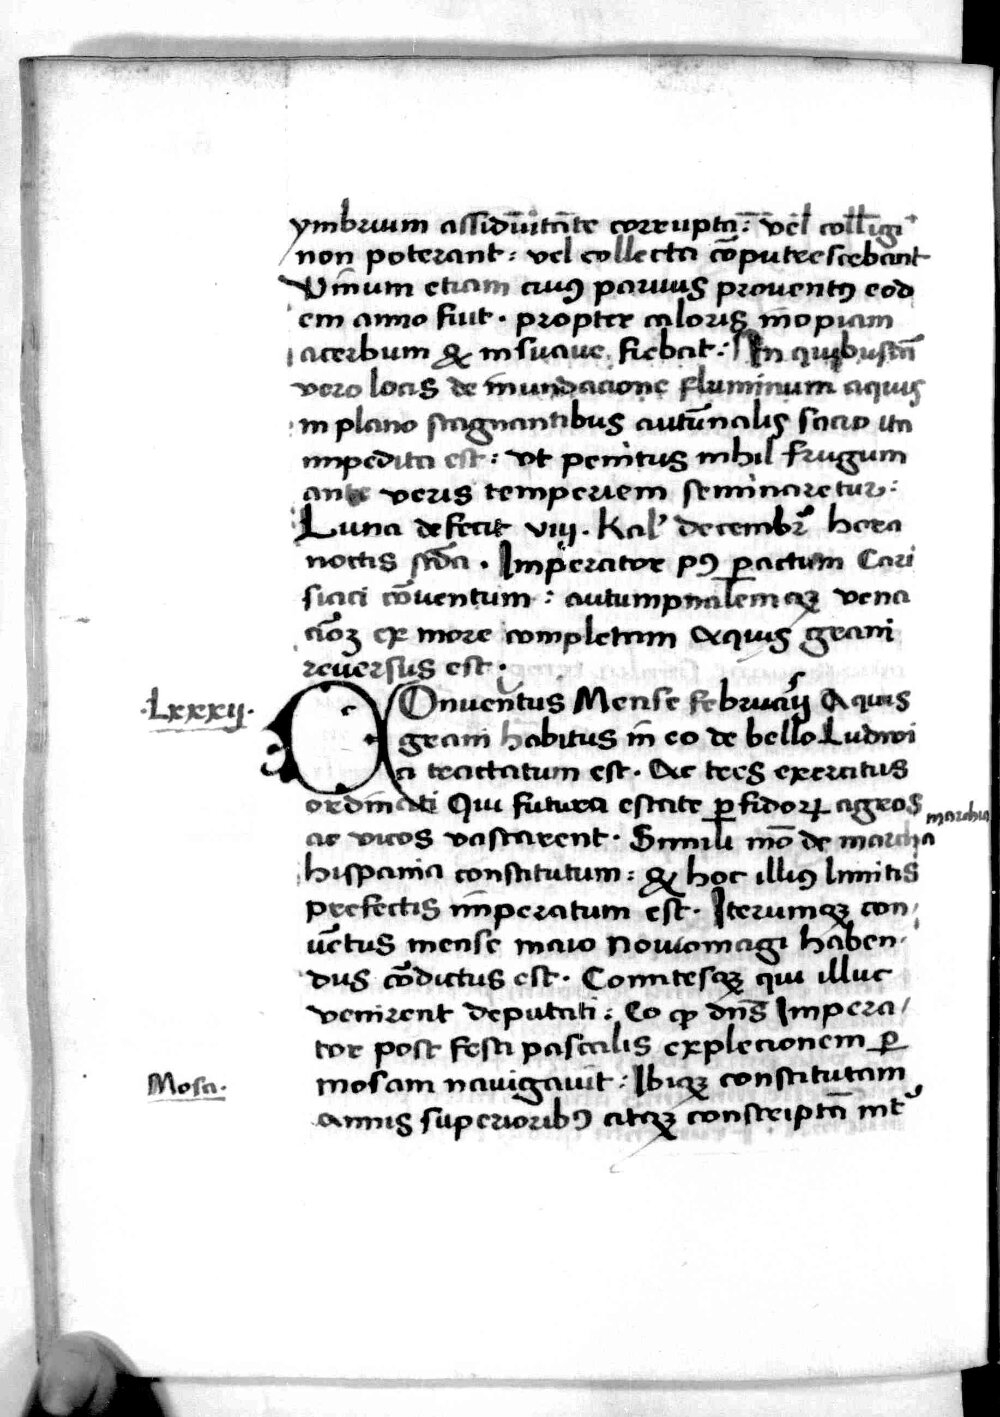 ymbrium assiduitāte corrupta: vel colligi
non poterant: vel collecta cōputrescebant
Vinum etiam cuiꝯ parvus proventꝯ eod
em anno fuit. propter caloris inopiam
acerbum & insuave fiebat: In quibusdā
vero locis de inundacione fluminum aquis
in plano stagnantibus autūnalis sacio ita
impedita est: vt penitus nihil frugum
ante veris temperiem seminaretur:
Luna defecit viii. Kal' decembr̄ hora
noctis scḋa. Imperator pꝯ ꝑactum Cari
siaci cōventum: autumpnalemqꝫ vena
ciōꝫ ex more completam Aquis grani
reversus est.
.Lxxxij.
COnventus Mense februarij Aquis
grani habitus in eo de bello Ludwi
ci tractatum est. Ac tres exercitus
ordinati Qui futura estate ꝑfidoꝝ agros
marchia
ac vicos vastarent. Simili mō de marcha
hispania constitutum: & hoc illiꝯ limitis
prefectis imperatum est. Iterumqꝫ con
vētus mense maio Noviomagi haben
dus cōdictus est. Comitesqꝫ qui illuc
venirent deputati: Eo ꝙ dn̄s Impera
tor post festi pascalis expletionem ꝑ
Mosa.
mosam navigavit: Ibiqꝫ constitutam
annis superioribꝯ atqꝫ conscriptā int'